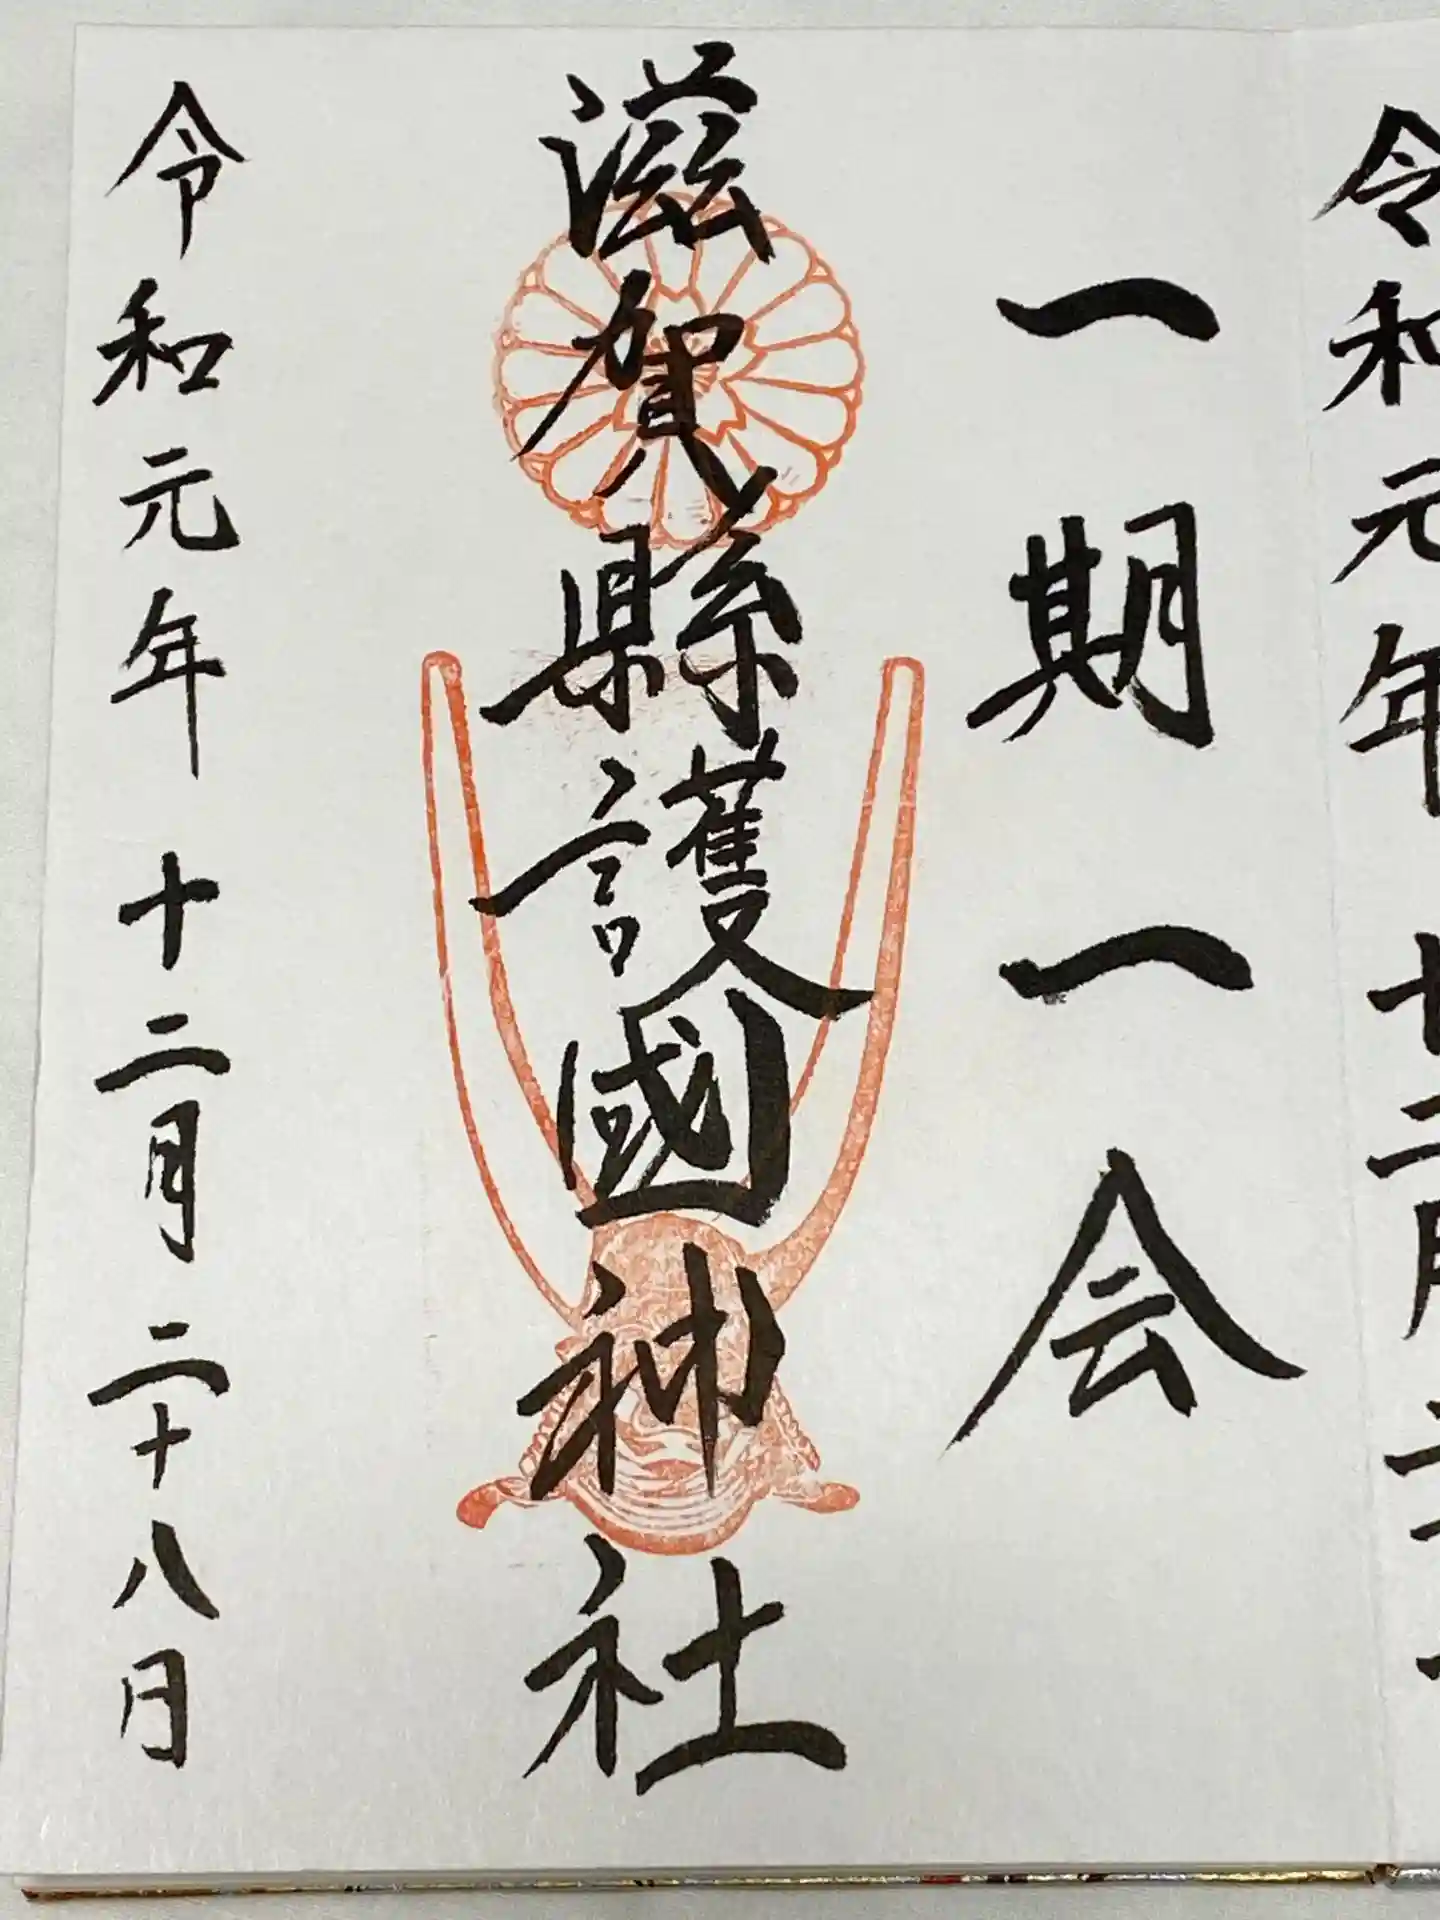 令和元年十二月二十
一期一会
滋賀縣護國神社
令和元年十二月二十八日